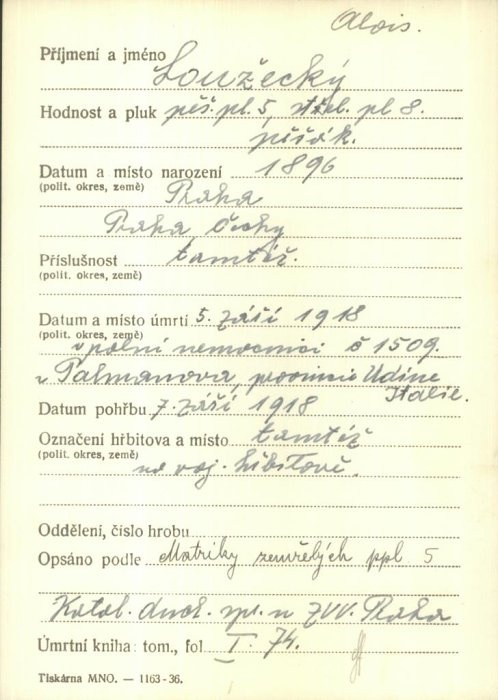 Alois.
Příjmení a jméno Loužecký
Hodnost a pluk pěš. pl. 5, střel. pl 8.
pěšák.
Datum a místo narození 1896
(polit. okres, země) Praha
Praha Čechy
Příslušnost tamtéž.
(polit. okres, země)
Datum a místo úmrtí 5. září 1918
(polit. okres, země) v polní nemocnici č 1509.
v Palmanova, provincie Udine
Italie.
Datum pohřbu 7. září 1918
Označení hřbitova a místo tamtéž
(polit. okres, země) na voj. hřbitově.
Oddělení, číslo hrobu
Opsáno podle Matriky zemřelých ppl 5
Katol. duch. spr. u ZVV. Praha
Úmrtní kniha: tom., fol I. 74.
Tiskárna MNO. — 1163-36.